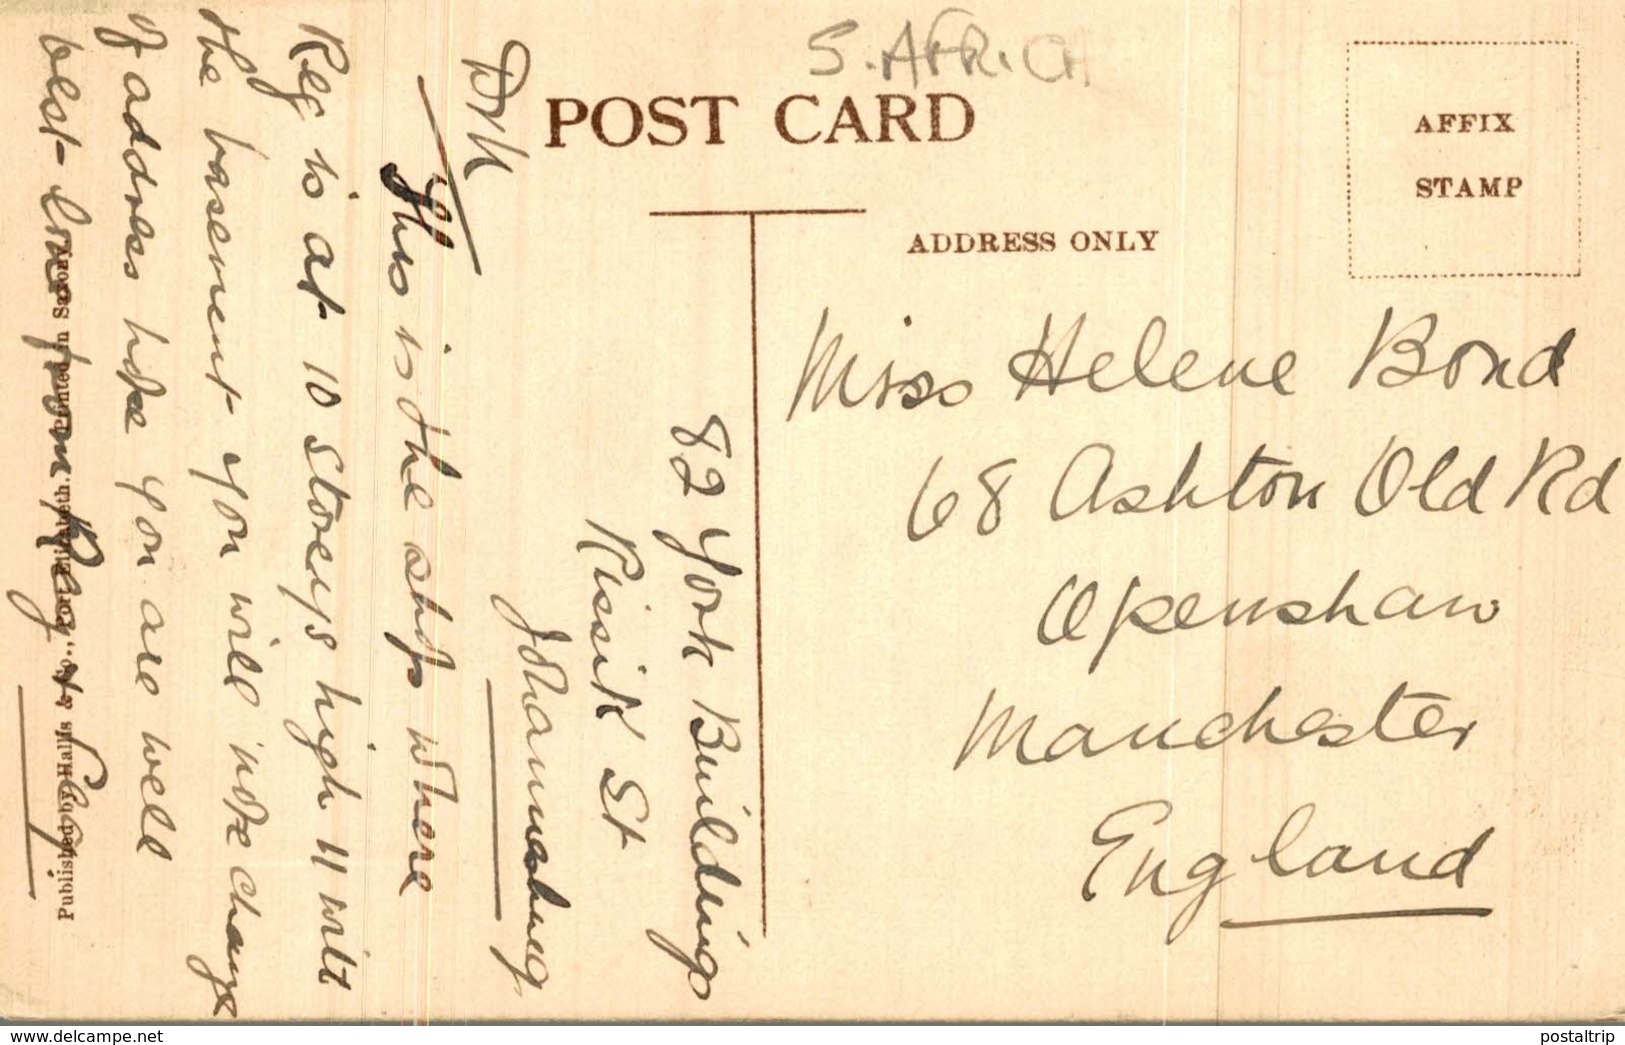 S. AFRICA
POST CARD
AFFIX
STAMP
ADDRESS ONLY
Miss Helene Bond
68 Ashton Old Rd
Openshaw
Manchester
England
82 York Buildings
Rissik St
Johannesburg
D/H
This is the ship where
Reg is at 10 storeys high 11 with
the basement you will note change
of address hope you are well
best love from Reg &
Published by Hallis & Co., Port Elizabeth. Printed in Saxony.
www.delcampe.net
postaltrip